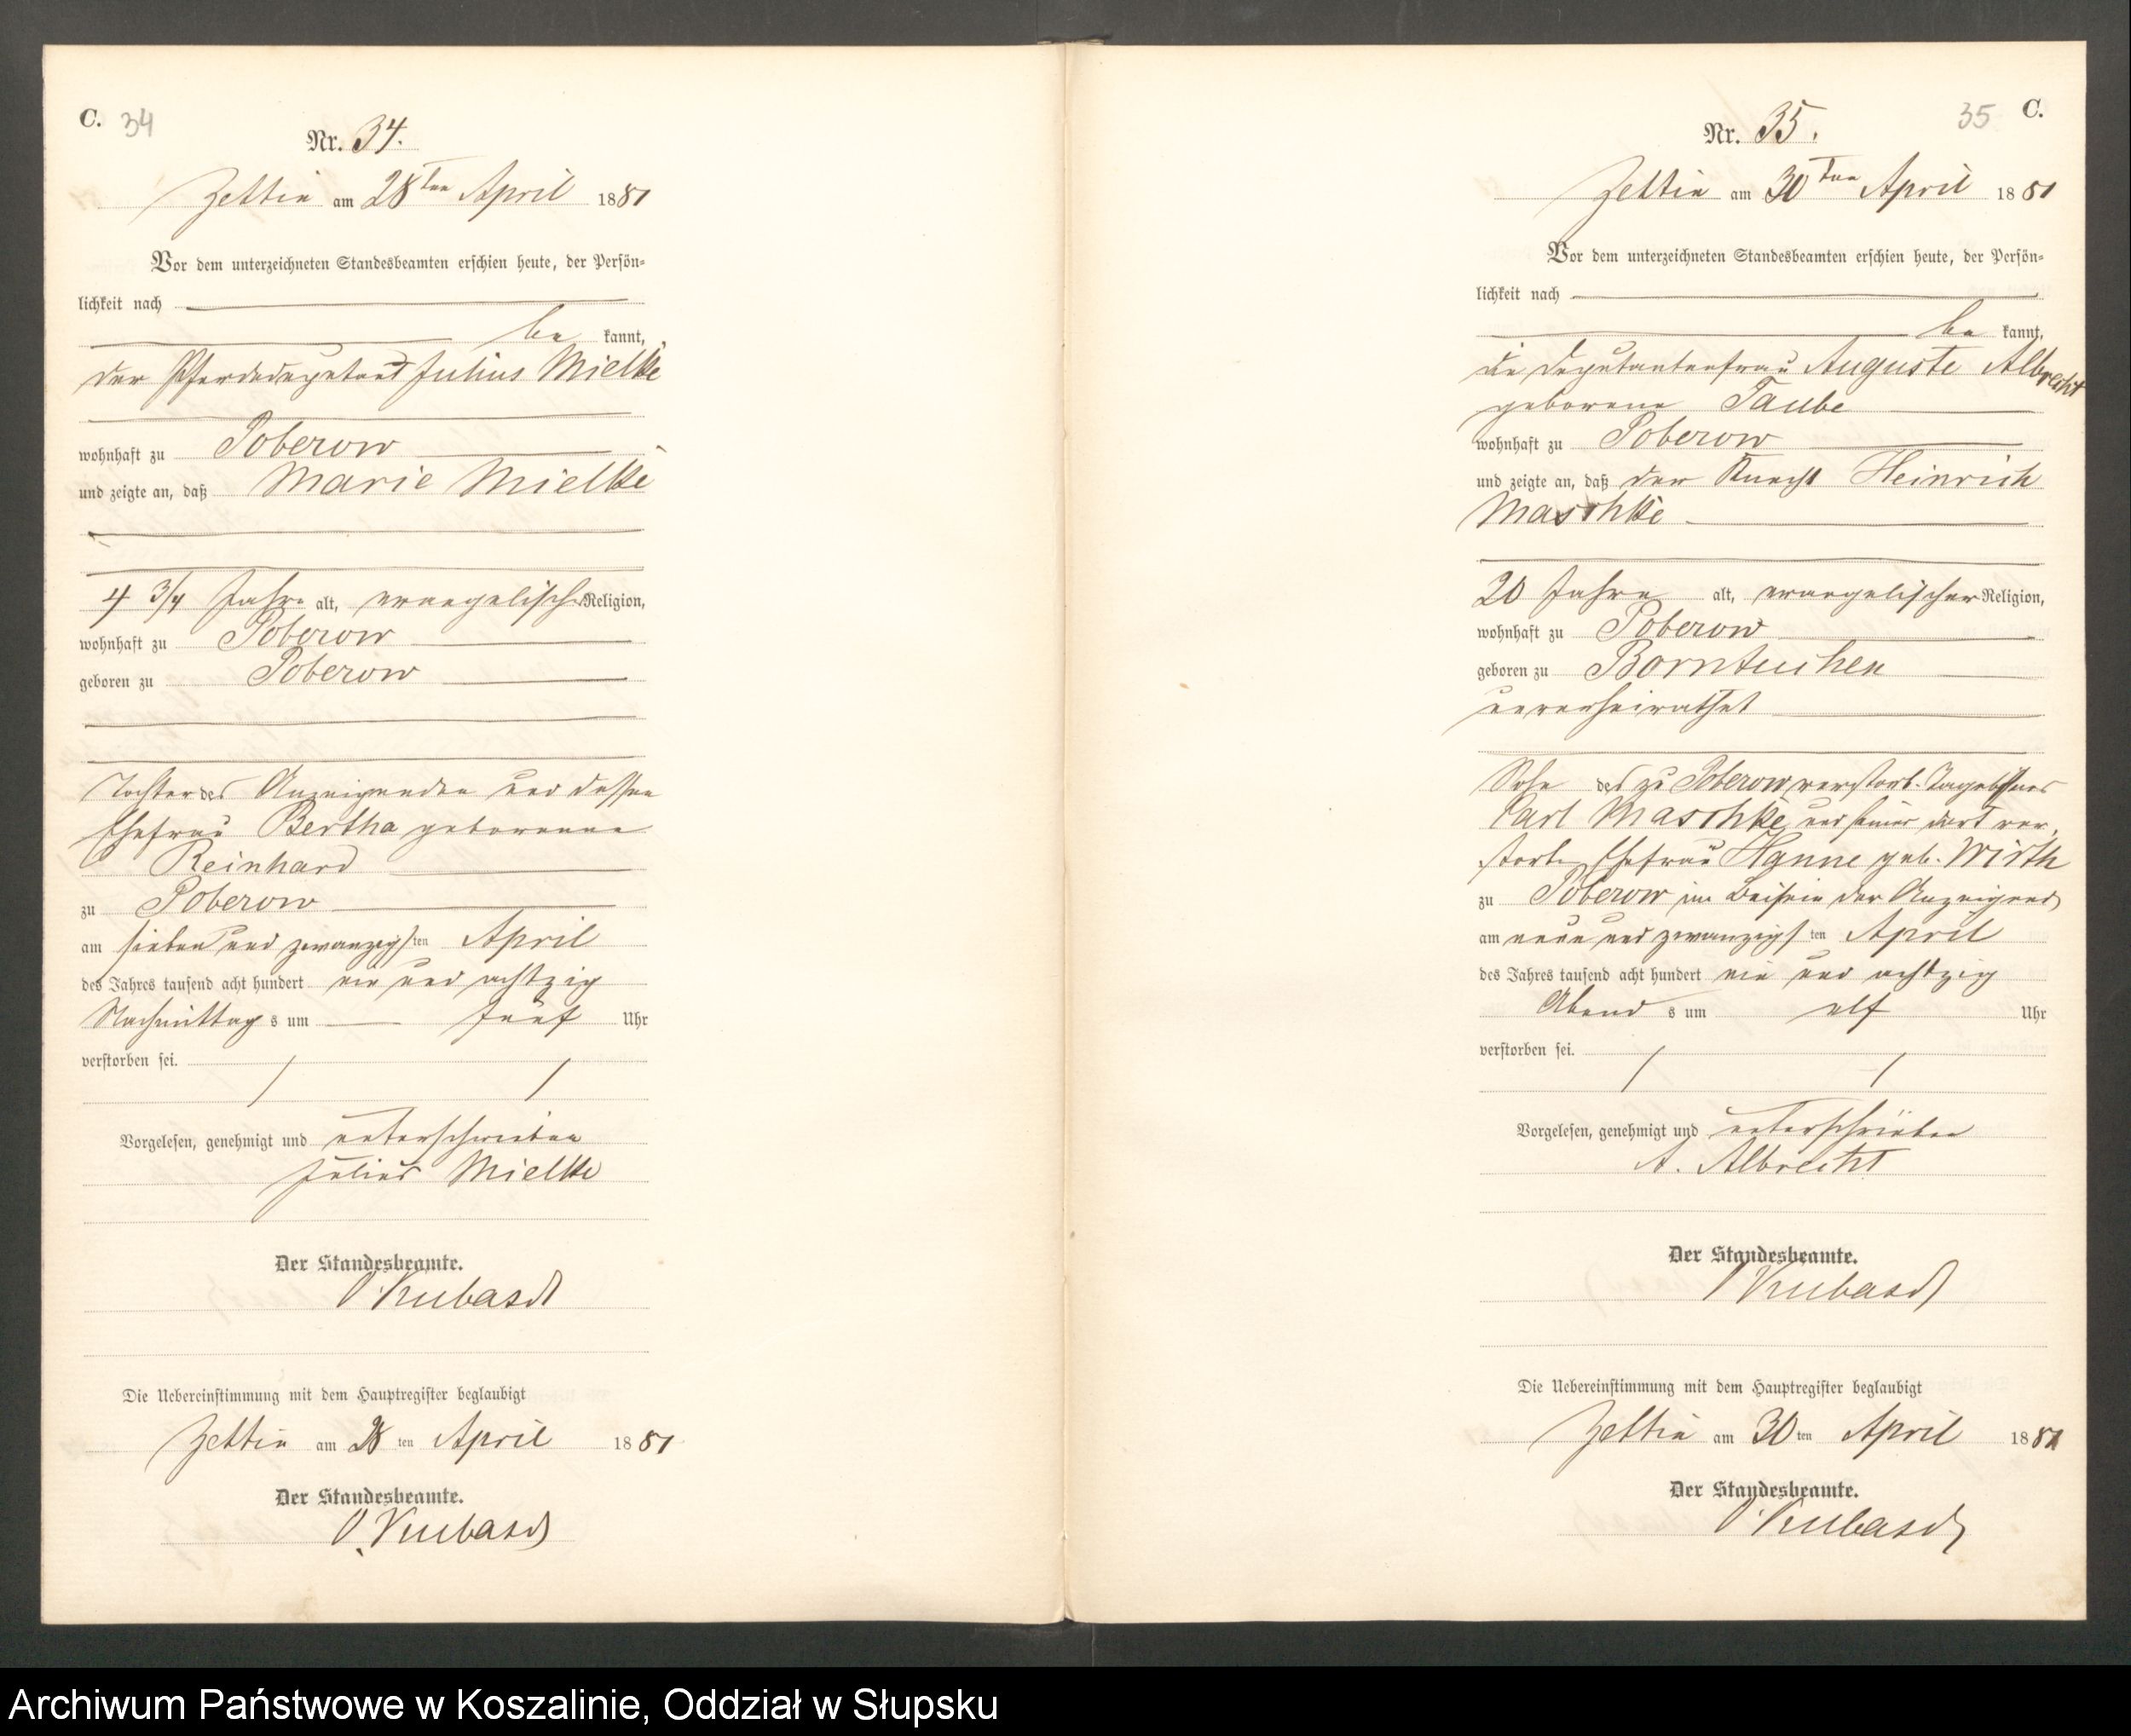 C. 34
Nr. 34.
Zettin am 28ten April 1881
Vor dem unterzeichneten Standesbeamten erschien heute, der Persön-
lichkeit nach
be kannt,
der Pferdedeputant Julius Mielke
wohnhaft zu Poberow
und zeigte an, daß Marie Mielke
4 3/4 Jahre alt, evangelischer Religion,
wohnhaft zu Poberow
geboren zu Poberow
Tochter des Anzeigenden und dessen
Ehefrau Bertha geborenen
Reinhard
zu Poberow
am sieben und zwanzigsten April
des Jahres tausend acht hundert ein und achtzig
Nachmittags um fünf Uhr
verstorben sei.
Vorgelesen, genehmigt und unterschrieben
Julius Mielke
Der Standesbeamte.
Die Uebereinstimmung mit dem Hauptregister beglaubigt
Zettin am 28ten April 1881
Der Standesbeamte.
35 C.
Nr. 35.
Zettin am 30ten April 1881
Vor dem unterzeichneten Standesbeamten erschien heute, der Persön-
lichkeit nach
be kannt,
die Deputantenfrau Auguste Albrecht
geborene Taube
wohnhaft zu Poberow
und zeigte an, daß der Knecht Heinrich
Maschke
20 Jahre alt, evangelischer Religion,
wohnhaft zu Poberow
geboren zu Borntuchen
unverheirathet
Sohn des zu Poberow verstorb. Tagelöhners
Carl Maschke und seiner dort ver-
storb. Ehefrau Hanne geb. Wirth
zu Poberow im Beisein der Anzeigend
am neun und zwanzigsten April
des Jahres tausend acht hundert ein und achtzig
Abends um elf Uhr
verstorben sei.
Vorgelesen, genehmigt und unterschrieben
A. Albrecht
Der Standesbeamte.
Die Uebereinstimmung mit dem Hauptregister beglaubigt
Zettin am 30ten April 1881
Der Standesbeamte.
Archiwum Państwowe w Koszalinie, Oddział w Słupsku